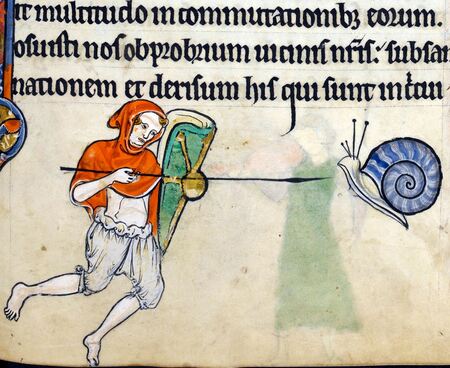 it multitudo in commutationibꝫ eorum.
osuisti nos obprobrium uicinis nr̄is: subsan
nationem et derisum his qui sunt in